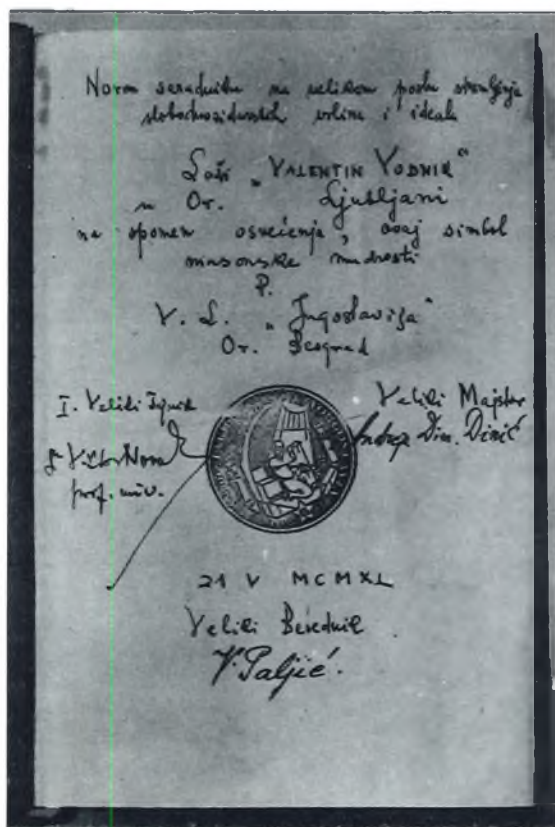 Novom saradniku na velikom poslu stvaranja
slobodnozidarskih vrlina i ideala
Loži „VALENTIN VODNIK“
u Or. Ljubljani
na spomen osvećenja, ovaj simbol
masonske mudrosti
P.
V. L. „Jugoslavija“
Or. Beograd
I. Veliki
Veliki Majstor
Dr Viktor Novak
Andra Dim. Dinić
prof. univ.
21 V MCMXL
Veliki Besednik
V. Paljić.